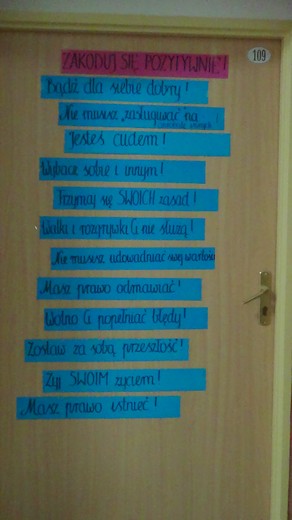 ZAKODUJ SIĘ POZYTYWNIE!
109
Bądź dla siebie dobry!
Nie musisz „zasługiwać" na
Jesteś cudem!
Wybacz sobie i innym!
Trzymaj się SWOICH zasad!
Walki i rozgrywki Ci nie służą!
Nie musisz udowadniać swej wartości
Masz prawo odmawiać!
Wolno Ci popełniać błędy!
Zostaw za sobą przeszłość!
Żyj SWOIM życiem!
Masz prawo istnieć!